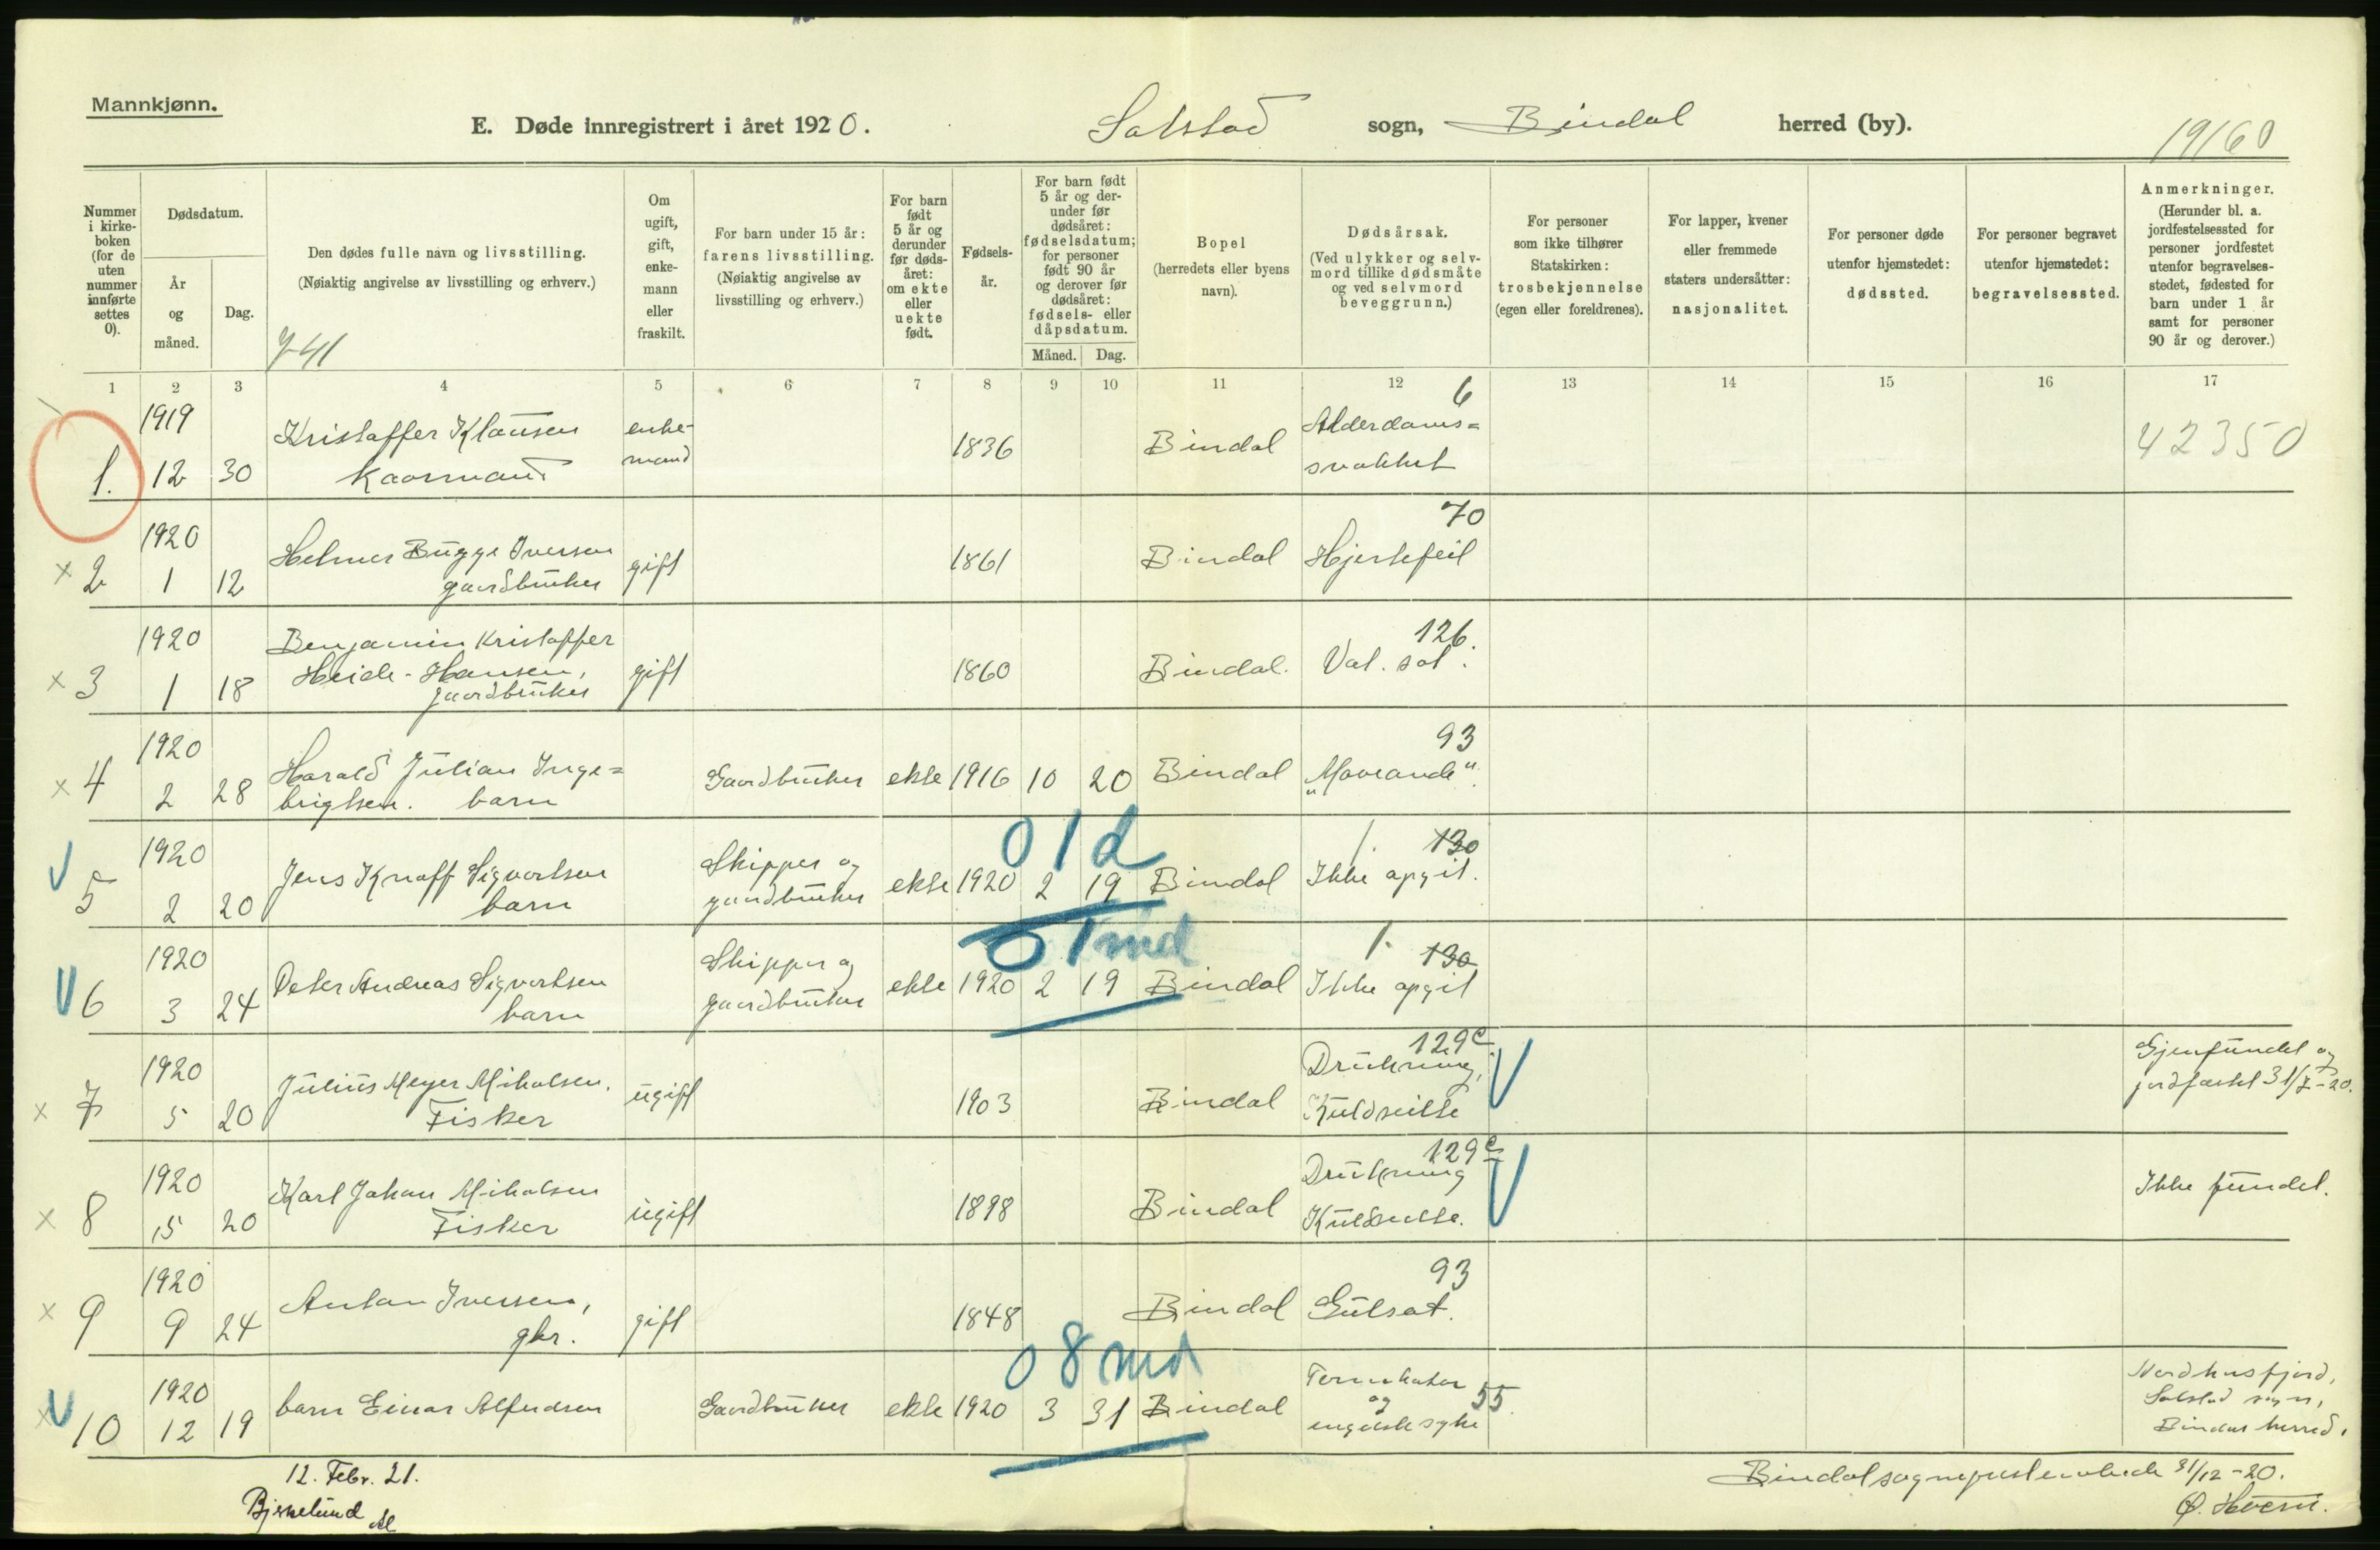 Mannkjønn.
E. Døde innregistrert i året 1920. Solstad sogn, Bindal herred (by).
19160
Nummer i kirke-boken (for de uten nummer innførte settes 0).
Dødsdatum.
År og måned.
Dag.
Den dødes fulle navn og livsstilling.
(Nøiaktig angivelse av livsstilling og erhverv.)
Om ugift, gift, enke-mann eller fraskilt.
For barn under 15 år: farens livsstilling.
(Nøiaktig angivelse av livsstilling og erhverv.)
For barn født 5 år og derunder før døds-året: om ekte eller uekte født.
Fødsels-år.
For barn født 5 år og der-under før dødsåret: fødselsdatum; for personer født 90 år og derover før dødsåret: fødsels- eller dåpsdatum.
Måned. Dag.
Bopel (herredets eller byens navn).
Dødsårsak.
(Ved ulykker og selv-mord tillike dødsmåte og ved selvmord beveggrunn.)
For personer som ikke tilhører Statskirken: trosbekjennelse (egen eller foreldrenes).
For lapper, kvener eller fremmede staters undersåtter: nasjonalitet.
For personer døde utenfor hjemstedet: dødssted.
For personer begravet utenfor hjemstedet: begravelsessted.
Anmerkninger.
(Herunder bl. a. jordfestelsessted for personer jordfestet utenfor begravelses-stedet, fødested for barn under 1 år samt for personer 90 år og derover.)
1 2 3 4 5 6 7 8 9 10 11 12 13 14 15 16 17
1. 1919 12 30 Kristoffer Klausen enke-mand 1836 Bindal Alderdoms= svakhet 6 42350
Kaarmand
x 2 1920 1 12 Helmer Bugge Iversen gaardbruker gift 1861 Bindal Hjertefeil 70
x 3 1920 1 18 Benjamin Kristoffer Heide-Hansen, gaardbruker gift 1860 Bindal. 126.
x 4 1920 2 28 Harald Julian Inge=brigtsen. barn Gaardbruker ekte 1916 10 20 Bindal 93
01d
5 1920 2 20 Jens Knoff Sigvartsen barn Skipper og gaardbruker ekte 1920 2 19 Bindal Ikke opgit. 1. 130
01md
6 1920 3 24 Peter Andreas Sigvartsen barn Skipper og gaardbruker ekte 1920 2 19 Bindal Ikke opgit 1. 130
x 7 1920 5 20 Julius Meyer Mikalsen. Fisker ugift 1903 Bindal Drukning, Kuldseilte 129c Gjenfundet og jordfæstet 31/7-20.
x 8 1920 5 20 Karl Johan Mikalsen Fisker ugift 1898 Bindal Drukning Kuldseilte. 129c Ikke fundet.
x 9 1920 9 24 Anton Iversen, gbr. gift 1848 Bindal Gulsot. 93
08 md
x 10 1920 12 19 barn Einar Alfredsen Gaardbruker ekte 1920 3 31 Bindal og engelsk syke 55. Nordhusfjord, Solstad sogn, Bindal herred.
12. Febr. 21.
Bjerkelund
Bindal sogneprestembede 31/12-20.